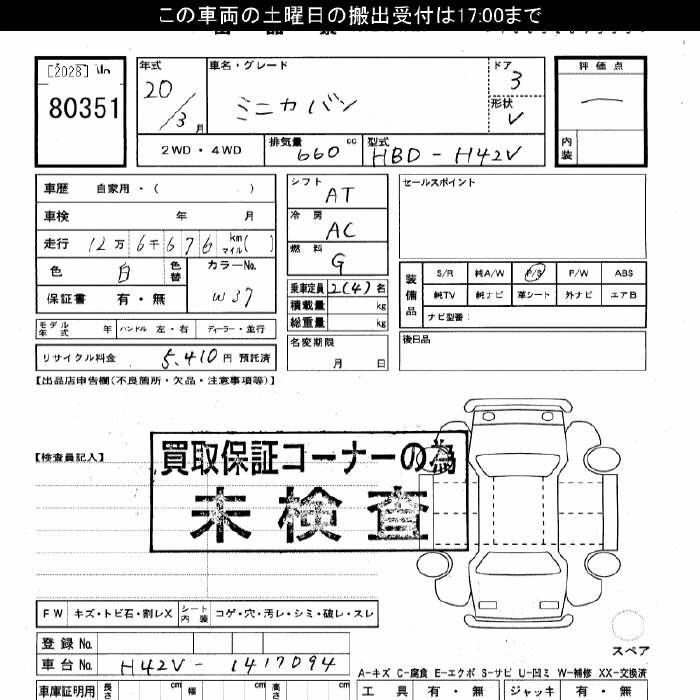 この車両の土曜日の搬出受付は17:00まで
[2028]
80351
年式
20/3月
車名・グレード
ミニカバン
ドア
3
形状
V
評価点
内装
2WD・4WD
排気量 660 cc
型式 HBD-H42V
車歴 自家用・( )
車検 年 月
走行 12万6千676 km マイル( )
色 白 色替
カラーNo. W37
保証書 有・無
シフト AT
冷房 AC
燃料 G
乗車定員 2(4)名
積載量 kg
総重量 kg
セールスポイント
装備品
S/R 純A/W P/S P/W ABS
純TV 純ナビ 革シート 外ナビ エアB
ナビ型番:
モデル年式 年 ハンドル 左・右 ディーラー・並行
名変期限 月 日
後日品
リサイクル料金 5,410円 預託済
【出品店申告欄(不良箇所・欠品・注意事項等)】
【検査員記入】
買取保証コーナーの為
未検査
FW キズ・トビ石・割レX シート内装 コゲ・穴・汚レ・シミ・破レ・スレ
スペア
登録No.
車台No. H42V-1417094
A-キズ C-腐食 E-エクボ S-サビ U-凹ミ W-補修 XX-交換済
車庫証明用 長さ cm 幅 cm 高さ cm
工具 有・無 ジャッキ 有・無